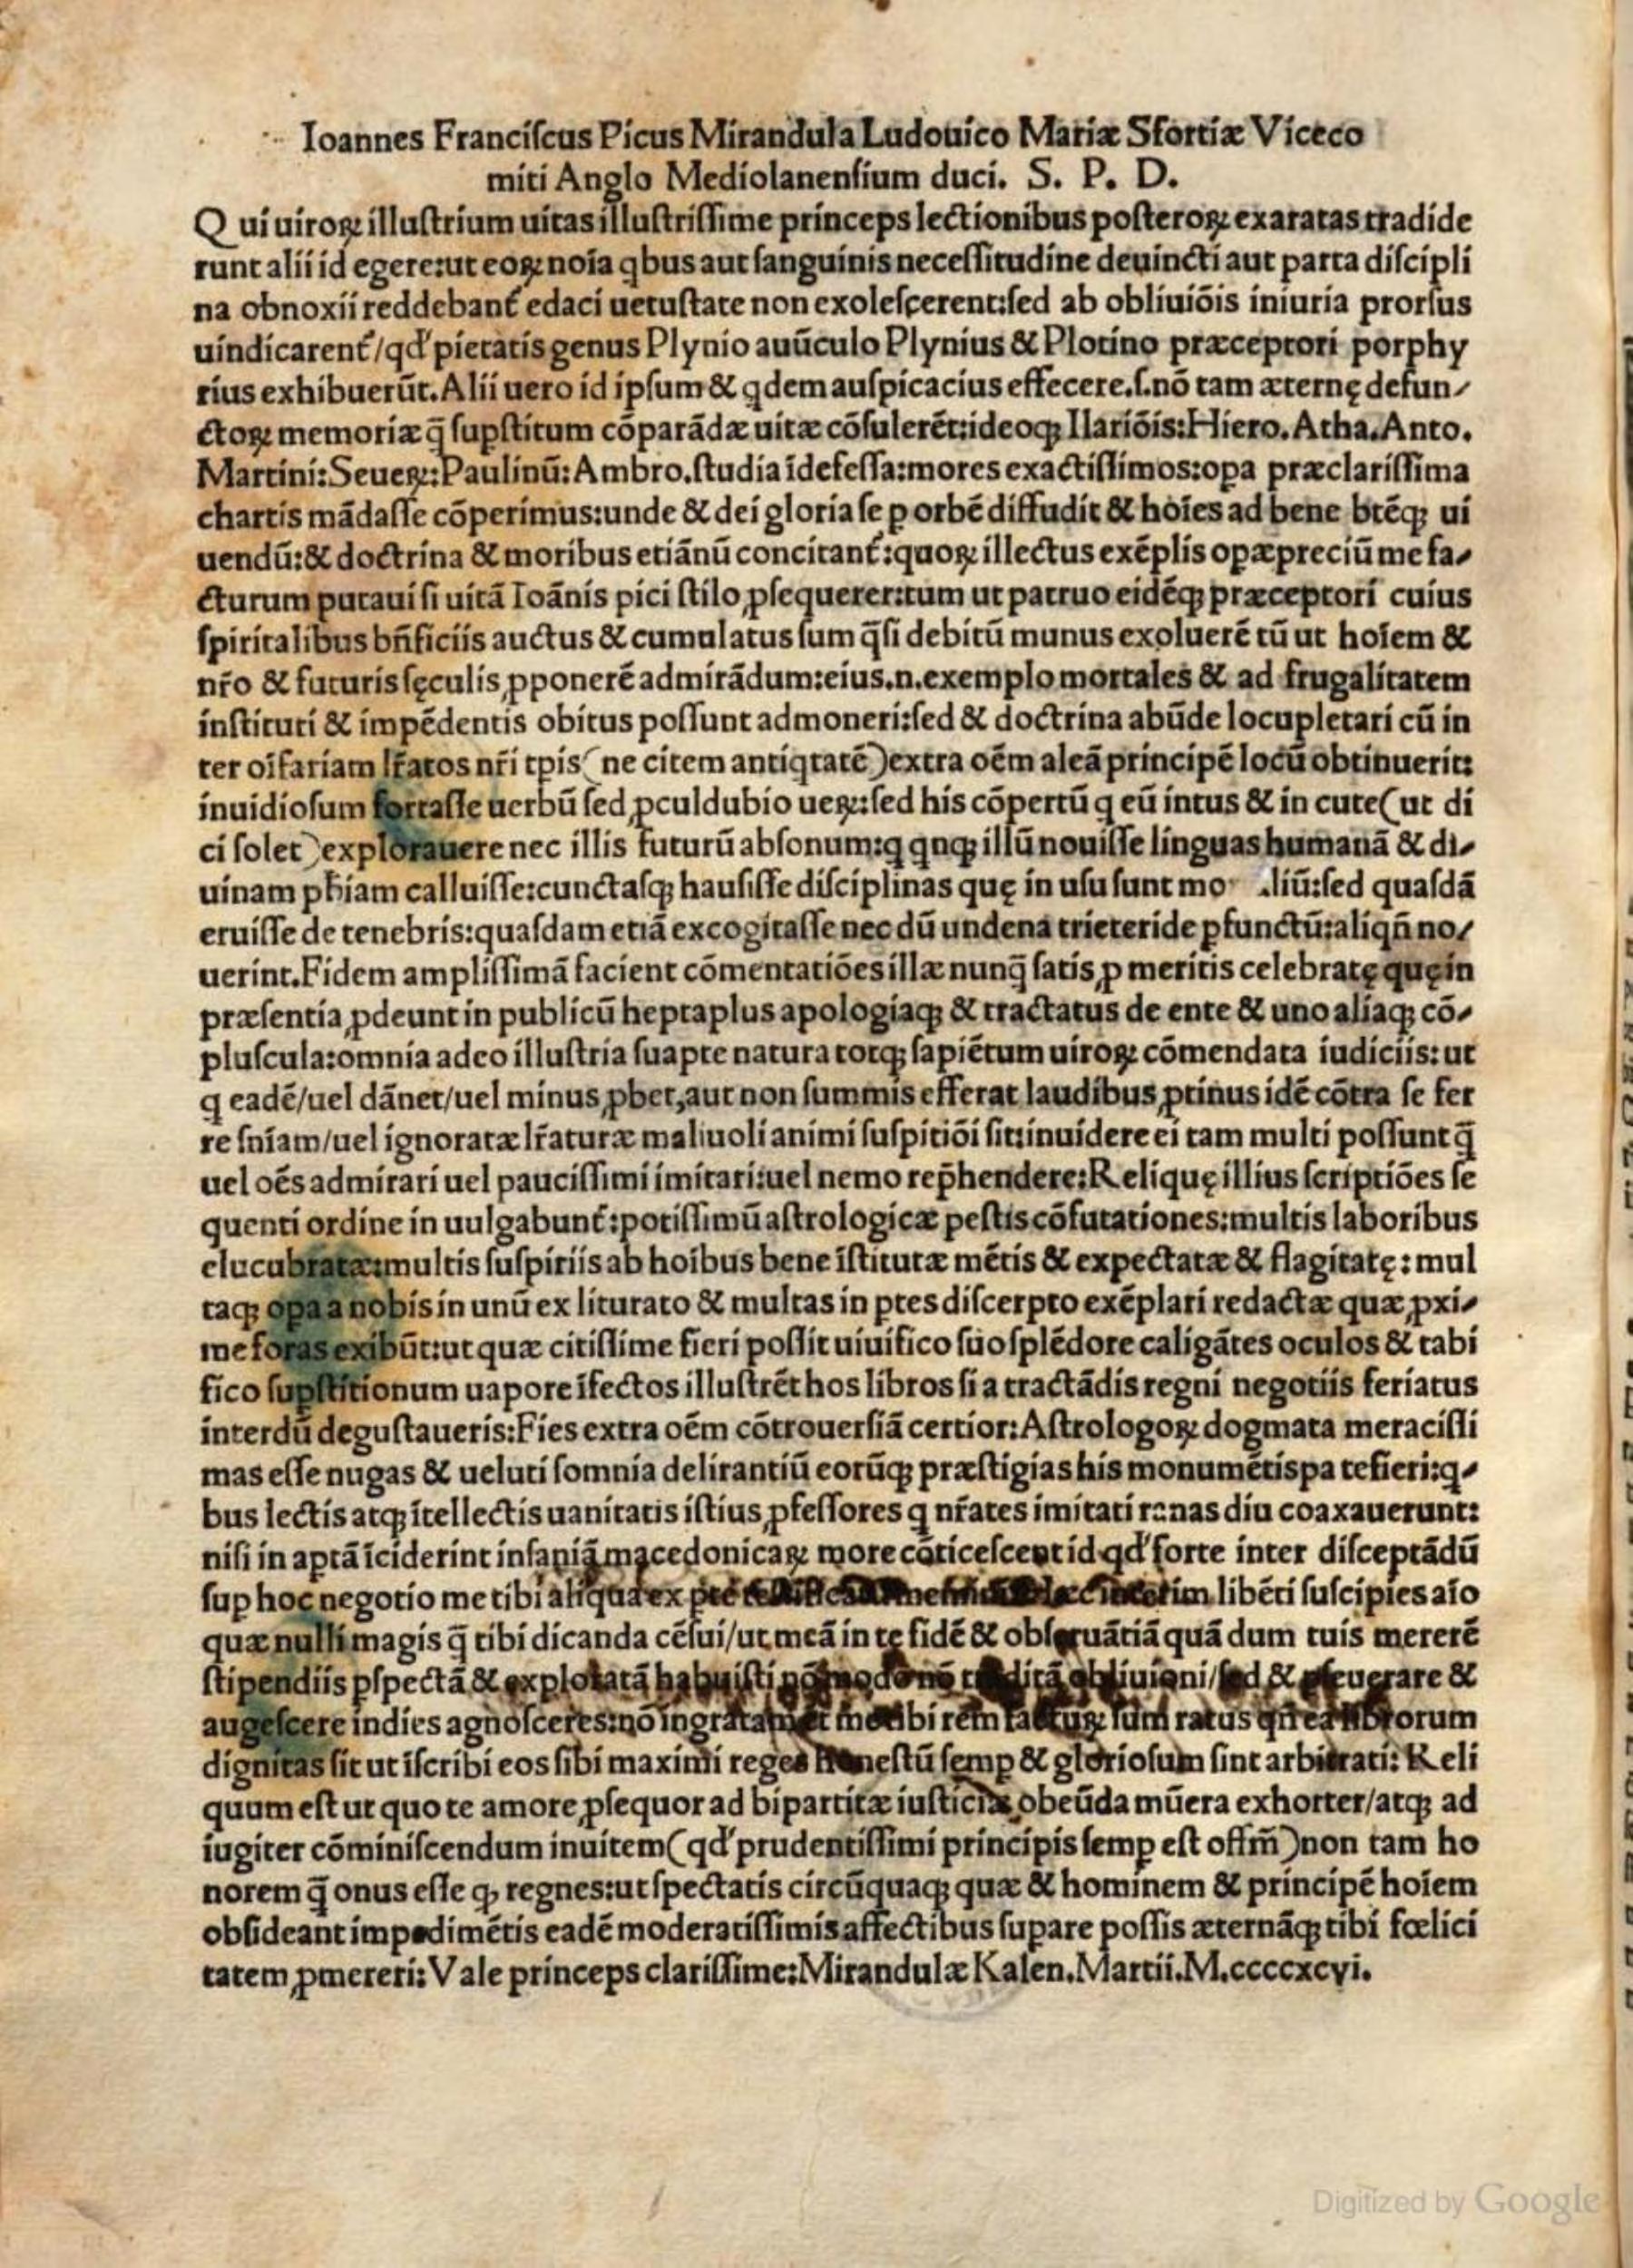 Ioannes Franciſcus Picus Mirandula Ludouico Mariæ Sfortiæ Viceco
miti Anglo Mediolanenſium duci. S. P. D.
Qui uiroꝝ illuſtrium uitas illuſtriſſime princeps lectionibus poſteroꝝ exaratas tradide
runt alii id egere:ut eoꝝ noīa qbus aut ſanguinis neceſſitudine deuincti aut parta diſcipli
na obnoxii reddebant᷑ edaci uetuſtate non exoleſcerent:ſed ab obliuiōis iniuria prorſus
uindicarent᷑/qđ pietatis genus Plynio auūculo Plynius & Plotino præceptori porphy
rius exhibuerūt. Alii uero id ipſum & qdem auſpicacius effecere.ſ.nō tam æternę defun⸗
ctoꝝ memoriæ q̄ ſupſtitum cōparādæ uitæ cōſulerēt:ideoqꝫ Ilariōis:Hiero.Atha.Anto.
Martini:Seueꝝ:Paulinū:Ambro.ſtudia īdefeſſa:mores exactiſſimos:opa præclariſſima
chartis mādaſſe cōperimus:unde & dei gloria ſe ꝑ orbē diffudit & hoīes ad bene btēqꝫ ui
uendū:& doctrina & moribus etiānū concitant᷑:quoꝝ illectus exēplis opæpreciū me fa⸗
cturum putaui ſi uitā Ioānis pici ſtilo ꝓſequerer:tum ut patruo eidēqꝫ præceptori cuius
ſpiritalibus bn̄ficiis auctus & cumulatus ſum q̄ſi debitū munus exoluerē tū ut hoīem &
nr̄o & futuris ſęculis ꝓponerē admirādum:eius.n.exemplo mortales & ad frugalitatem
inſtituti & impēdentis obitus poſſunt admoneri:ſed & doctrina abūde locupletari cū in
ter oīfariam lr̄atos nr̄i tpis( ne citem antiqtatē)extra oēm aleā principē locū obtinuerit:
inuidioſum fortaſſe uerbū ſed ꝓculdubio ueꝝ:ſed his cōpertū q eū intus & in cute(ut di
ci ſolet)explorauere nec illis futurū abſonum:q qnqꝫ illū nouiſſe linguas humanā & di⸗
uinam ph̄iam calluiſſe:cunctaſqꝫ hauſiſſe diſciplinas quę in uſu ſunt mo liū:ſed quaſdā
eruiſſe de tenebris:quaſdam etiā excogitaſſe nec dū undena trieteride ꝑfunctū:aliqn̄ no⸗
uerint.Fidem ampliſſimā facient cōmentatiōes illæ nunq̄ ſatis ꝓ meritis celebratę quę in
præſentia ꝓdeunt in publicū heptaplus apologiaqꝫ & tractatus de ente & uno aliaqꝫ cō⸗
pluſcula:omnia adeo illuſtria ſuapte natura totqꝫ ſapiētum uiroꝝ cōmendata iudiciis:ut
q eadē/uel dānet/uel minus ꝓbet,aut non ſummis efferat laudibus ꝓtinus idē cōtra ſe fer
re ſniam/uel ignoratæ lr̄aturæ maliuoli animi ſuſpitiōi ſit:inuidere ei tam multi poſſunt q̄
uel oēs admirari uel pauciſſimi imitari:uel nemo rep̄hendere:Reliquę illius ſcriptiōes ſe
quenti ordine in uulgabunt᷑:potiſſimū aſtrologicæ peſtis cōfutationes:multis laboribus
elucubratæ:multis ſuſpiriis ab hoībus bene īſtitutæ mētis & expectatæ & flagitatę:mul
taqꝫ opa a nobis in unū ex liturato & multas in ptes diſcerpto exēplari redactæ quæ ꝓxi⸗
me foras exibūt:ut quæ citiſſime fieri poſſit uiuifico ſuo ſplēdore caligātes oculos & tabi
fico ſupſtitionum uapore īfectos illuſtrēt hos libros ſi a tractādis regni negotiis feriatus
interdū deguſtaueris:Fies extra oēm cōtrouerſiā certior:Aſtrologoꝝ dogmata meraciſſi
mas eſſe nugas & ueluti ſomnia delirantiū eorūqꝫ præſtigias his monumētis pa tefieri:q⸗
bus lectis atqꝫ ītellectis uanitatis iſtius ꝓfeſſores q nr̄ates imitati ranas diu coaxauerunt:
niſi in aptā īciderint inſaniā macedonicaꝝ more cōticeſcent id qđ forte inter diſceptādū
ſup hoc negotio me tibi aliqua ex pte libēti ſuſcipies aīo
quæ nulli magis q̄ tibi dicanda cēſui/ut meā in te fidē & obſeruātiā quā dum tuis mererē
ſtipendiis ꝑſpectā & exploratā habuiſti nō modo nō traditā obliuioni/ſed & pſeuerare &
augeſcere indies agnoſceres:nō ingratam et me tibi rem factuꝝ ſum ratus qn̄ ea librorum
dignitas ſit ut īſcribi eos ſibi maximi reges honeſtū ſemp & glorioſum ſint arbitrati: Reli
quum eſt ut quo te amore ꝓſequor ad bipartitæ iuſticiæ obeūda mūera exhorter/atqꝫ ad
iugiter cōminiſcendum inuitem(qđ prudentiſſimi principis ſemp eſt offm̄)non tam ho
norem q̄ onus eſſe qꝫ regnes:ut ſpectatis circūquaqꝫ quæ & hominem & principē hoīem
obſideant impedimētis eadē moderatiſſimis affectibus ſupare poſſis æternāqꝫ tibi fœlici
tatem ꝓmereri:Vale princeps clariſſime:Mirandulæ Kalen.Martii.M.ccccxcvi.
Digitized by Google